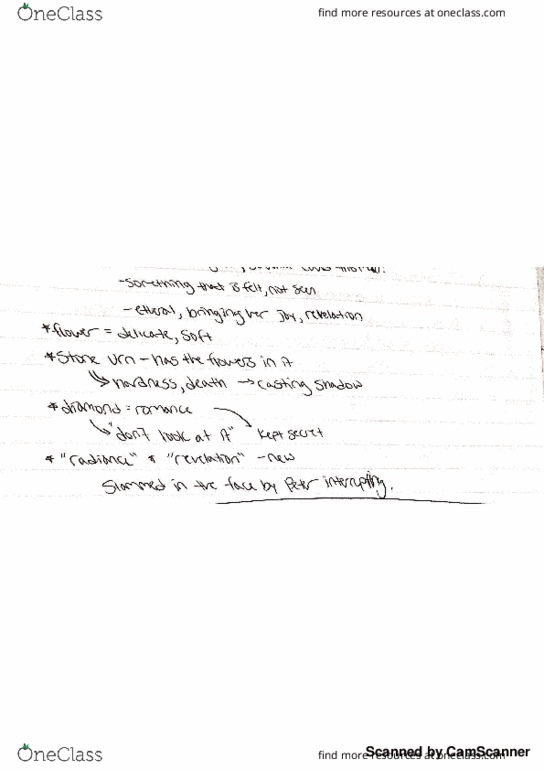 OneClass
find more resources at oneclass.com
-something that is felt, not seen
-etheral, bringing her joy, revelation
*flower = delicate, soft
*Stone urn - has the flowers in it
↳ hardness, death → casting shadow
*diamond = romance
↳ "don't look at it" kept secret
* "radiance" & "revelation" - new
Slammed in the face by Peter interrupting.
OneClass
find more resources at oneclass.com
Scanned by CamScanner